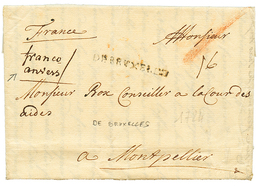 France
Monsieur
franco
anvers
DE BRUXELLES
16
Monsieur Box Conseiller a la Cour des
aides
DE BRUXELLES
a Montpellier